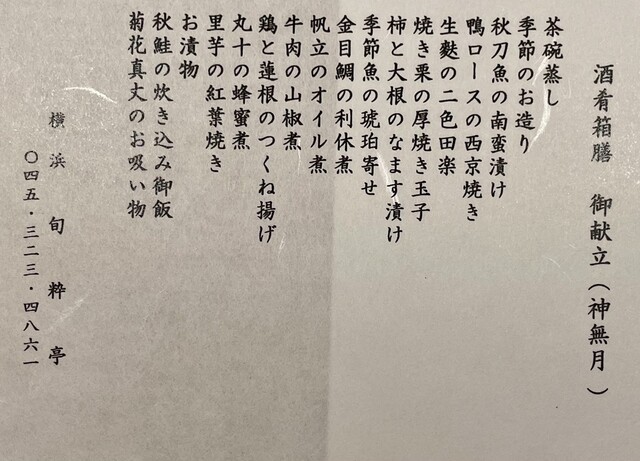 酒肴箱膳 御献立(神無月)
茶碗蒸し
季節のお造り
秋刀魚の南蛮漬け
鴨ロースの西京焼き
生麩の二色田楽
焼き栗の厚焼き玉子
柿と大根のなます漬け
季節魚の琥珀寄せ
金目鯛の利休煮
帆立のオイル煮
牛肉の山椒煮
鶏と蓮根のつくね揚げ
丸十の蜂蜜煮
里芋の紅葉焼き
お漬物
秋鮭の炊き込み御飯
菊花真丈のお吸い物
横浜旬粋亭
〇四五・三二三・四八六一